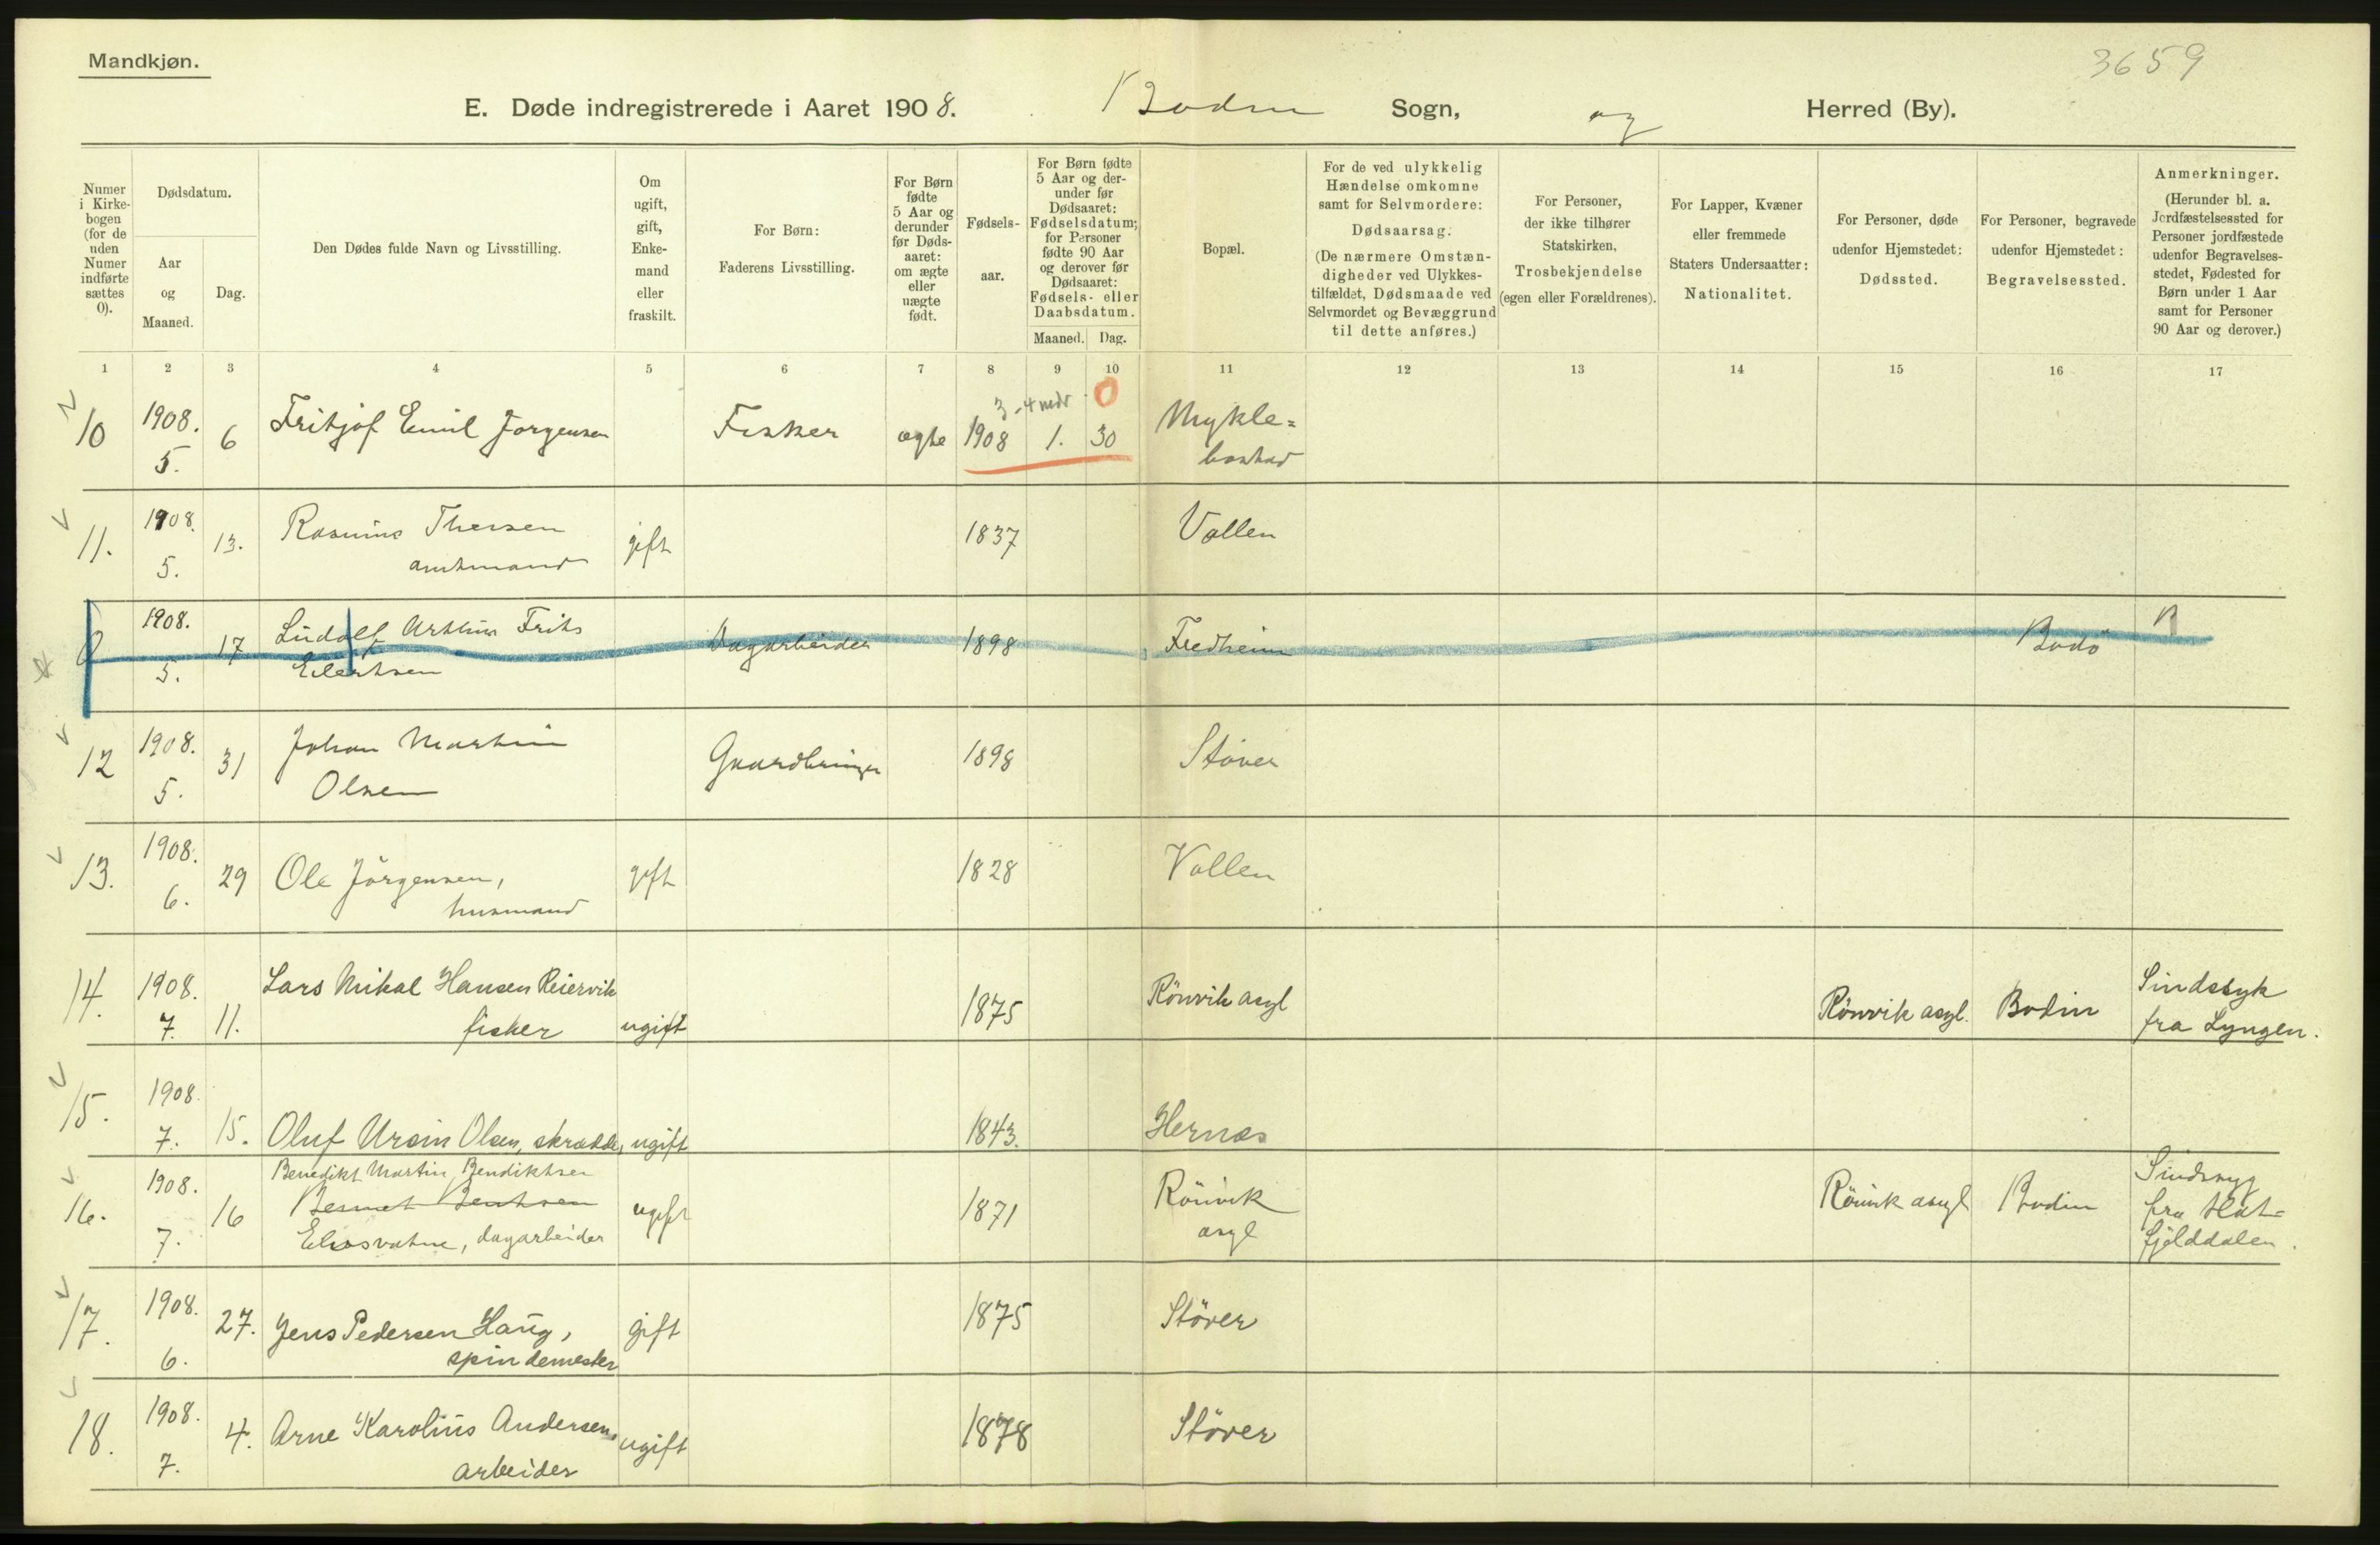 Mandkjøn.
3659
E. Døde indregistrerede i Aaret 1908. Bodin Sogn, og Herred (By).
Numer i Kirke-bogen (for de uden Numer indførte sættes 0).
Dødsdatum.
Aar og Maaned.
Dag.
Den Dødes fulde Navn og Livsstilling.
Om ugift, gift, Enke-mand eller fraskilt.
For Børn: Faderens Livsstilling.
For Børn fødte 5 Aar og derunder før Døds-aaret: om ægte eller uægte født.
Fødsels-aar.
For Børn fødte 5 Aar og der-under før Dødsaaret: Fødselsdatum; for Personer fødte 90 Aar og derover før Dødsaaret: Fødsels- eller Daabsdatum.
Maaned. Dag.
Bopæl.
For de ved ulykkelig Hændelse omkomne samt for Selvmordere: Dødsaarsag. (De nærmere Omstæn-digheder ved Ulykkes-tilfældet, Dødsmaade ved Selvmordet og Bevæggrund til dette anføres.)
For Personer, der ikke tilhører Statskirken, Trosbekjendelse (egen eller Forældrenes).
For Lapper, Kvæner eller fremmede Staters Undersaatter: Nationalitet.
For Personer, døde udenfor Hjemstedet: Dødssted.
For Personer, begravede udenfor Hjemstedet: Begravelsessted.
Anmerkninger. (Herunder bl. a. Jordfæstelsessted for Personer jordfæstede udenfor Begravelses-stedet, Fødested for Børn under 1 Aar samt for Personer 90 Aar og derover.)
1 2 3 4 5 6 7 8 9 10 11 12 13 14 15 16 17
3-4 mdr 0
10 1908. 5. 6 Fritjof Emil Jørgensen Fisker ægte 1908 1. 30 Mykle=
bostad
11. 1908. 5. 13. Rasmus Theisen
amtmand gift 1837 Vollen
0 1908. 5. 17 Ludolf Arthur Frits
Eilertsen Dagarbeider 1898 Fredheim Bodø B
12 1908. 5. 31 Johan Martin
Olsen Gaardbruger 1898 Støver
13. 1908. 6. 29 Ole Jörgensen,
husmand gift 1828 Vollen
14. 1908. 7. 11. Lars Mikal Hansen Reiervik
fisker ugift 1875 Rönvik asyl Rönvik asyl. Bodin Sindssyk
fra Lyngen.
15. 1908. 7. 15. Oluf Ursin Olsen, skrædder, ugift 1843. Hernes
16. 1908. 7. 16 Benedikt Martin Bendiktsen
Bernt Bentsen
Eliasvatne, dagarbeider ugift 1871 Rönvik
asyl Rönvik asyl Bodin Sindssyg
fra Hat=
fjelddalen.
17. 1908. 6. 27. Jens Pedersen Haug,
spindemester gift 1875 Störer
18. 1908. 7. 4. Arne Karolius Andersen,
arbeider ugift 1878 Störer